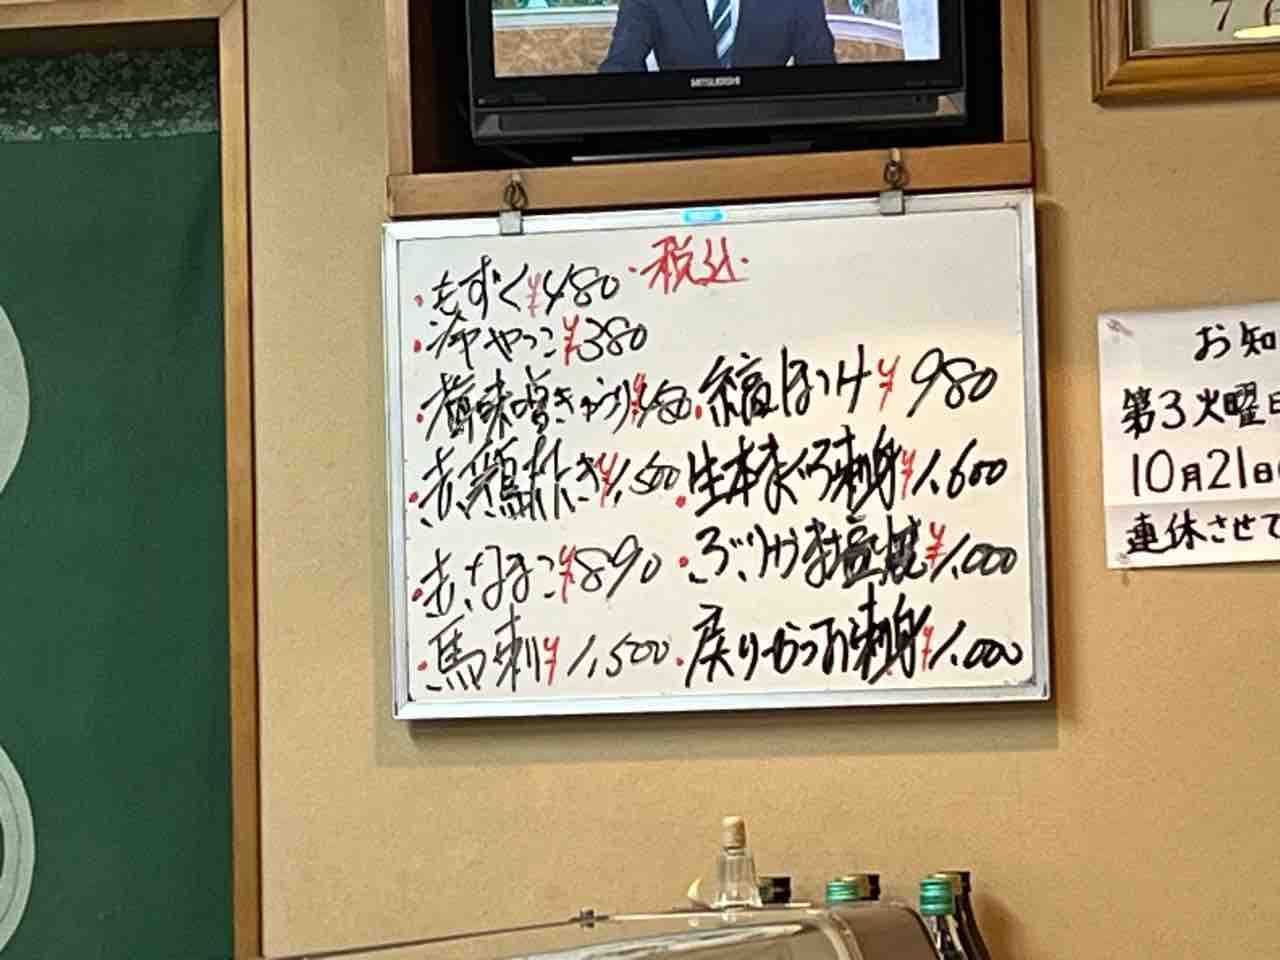 MITSUBISHI
・税込・
・もずく¥480
・冷やっこ¥380
・梅味噌きゅうり¥480
・赤鶏たたき¥1,500
・赤なまこ¥890
・馬刺¥1,500
・縞ほっけ¥980
・生本まぐろ刺身¥1,600
・ぶりかま塩焼¥1,000
・戻りかつお刺身¥1,000
お知
第3火曜日
10月21日
連休させて